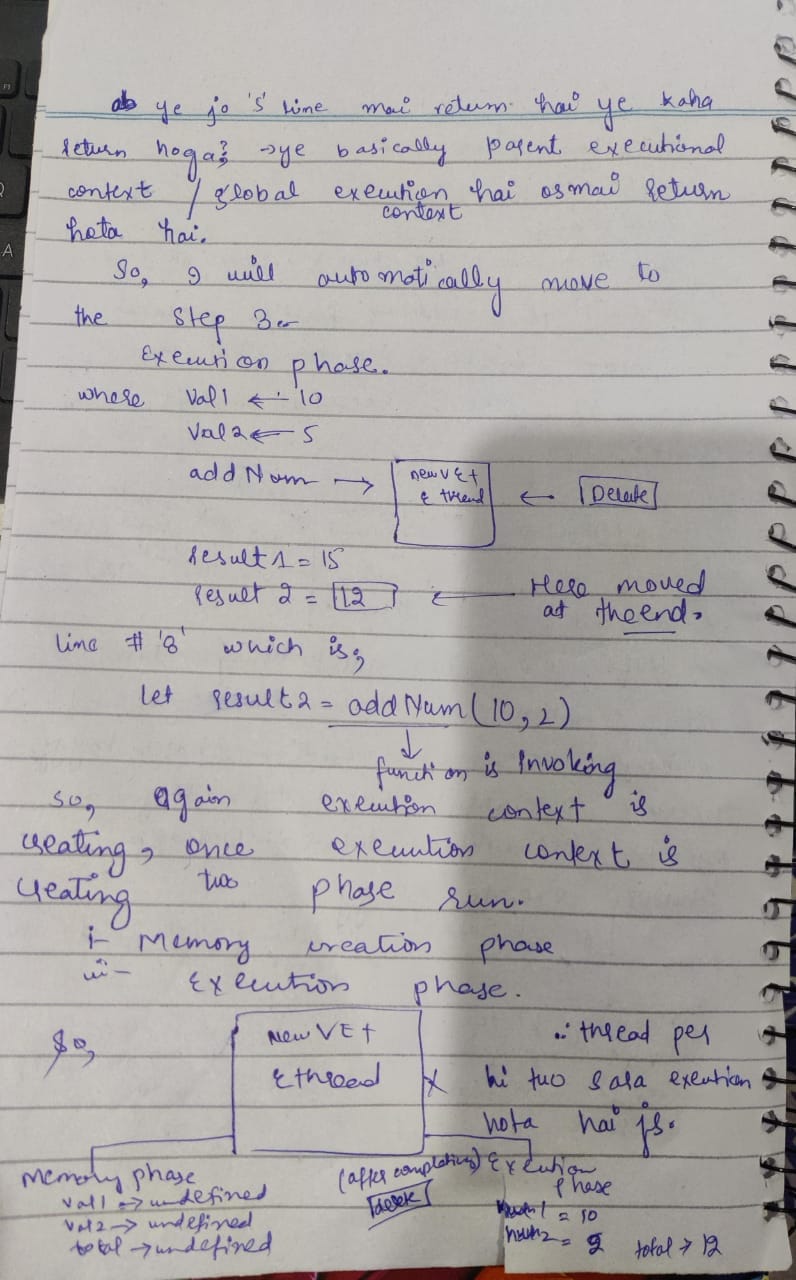 ab ye jo '5' line mai return hai ye kaha
return hoga? →ye basically parent executional
context / global execution hai osmai return
context
hota hai.
So, I will automatically move to
the Step 3
Execution phase.
where Val1 ← 10
Val2 ← 5
addNum → new VE + E thread ← Delete
result1 = 15
result 2 = 12 ← Here moved
at the end.
line # '8' which is,
let result2 = addNum(10, 2)
↓
function is Invoking
so, again execution context is
creating, once execution context is
creating two phase run.
i- Memory creation phase
ii- Execution phase.
So, New VE + ∴ thread per
E thread X hi tuo sara exention
hota hai js.
Memory phase (after completing) Exention
Phase
val1 → undefined delete
val2 → undefined num1 = 10
total → undefined num2 = 2 total → 12